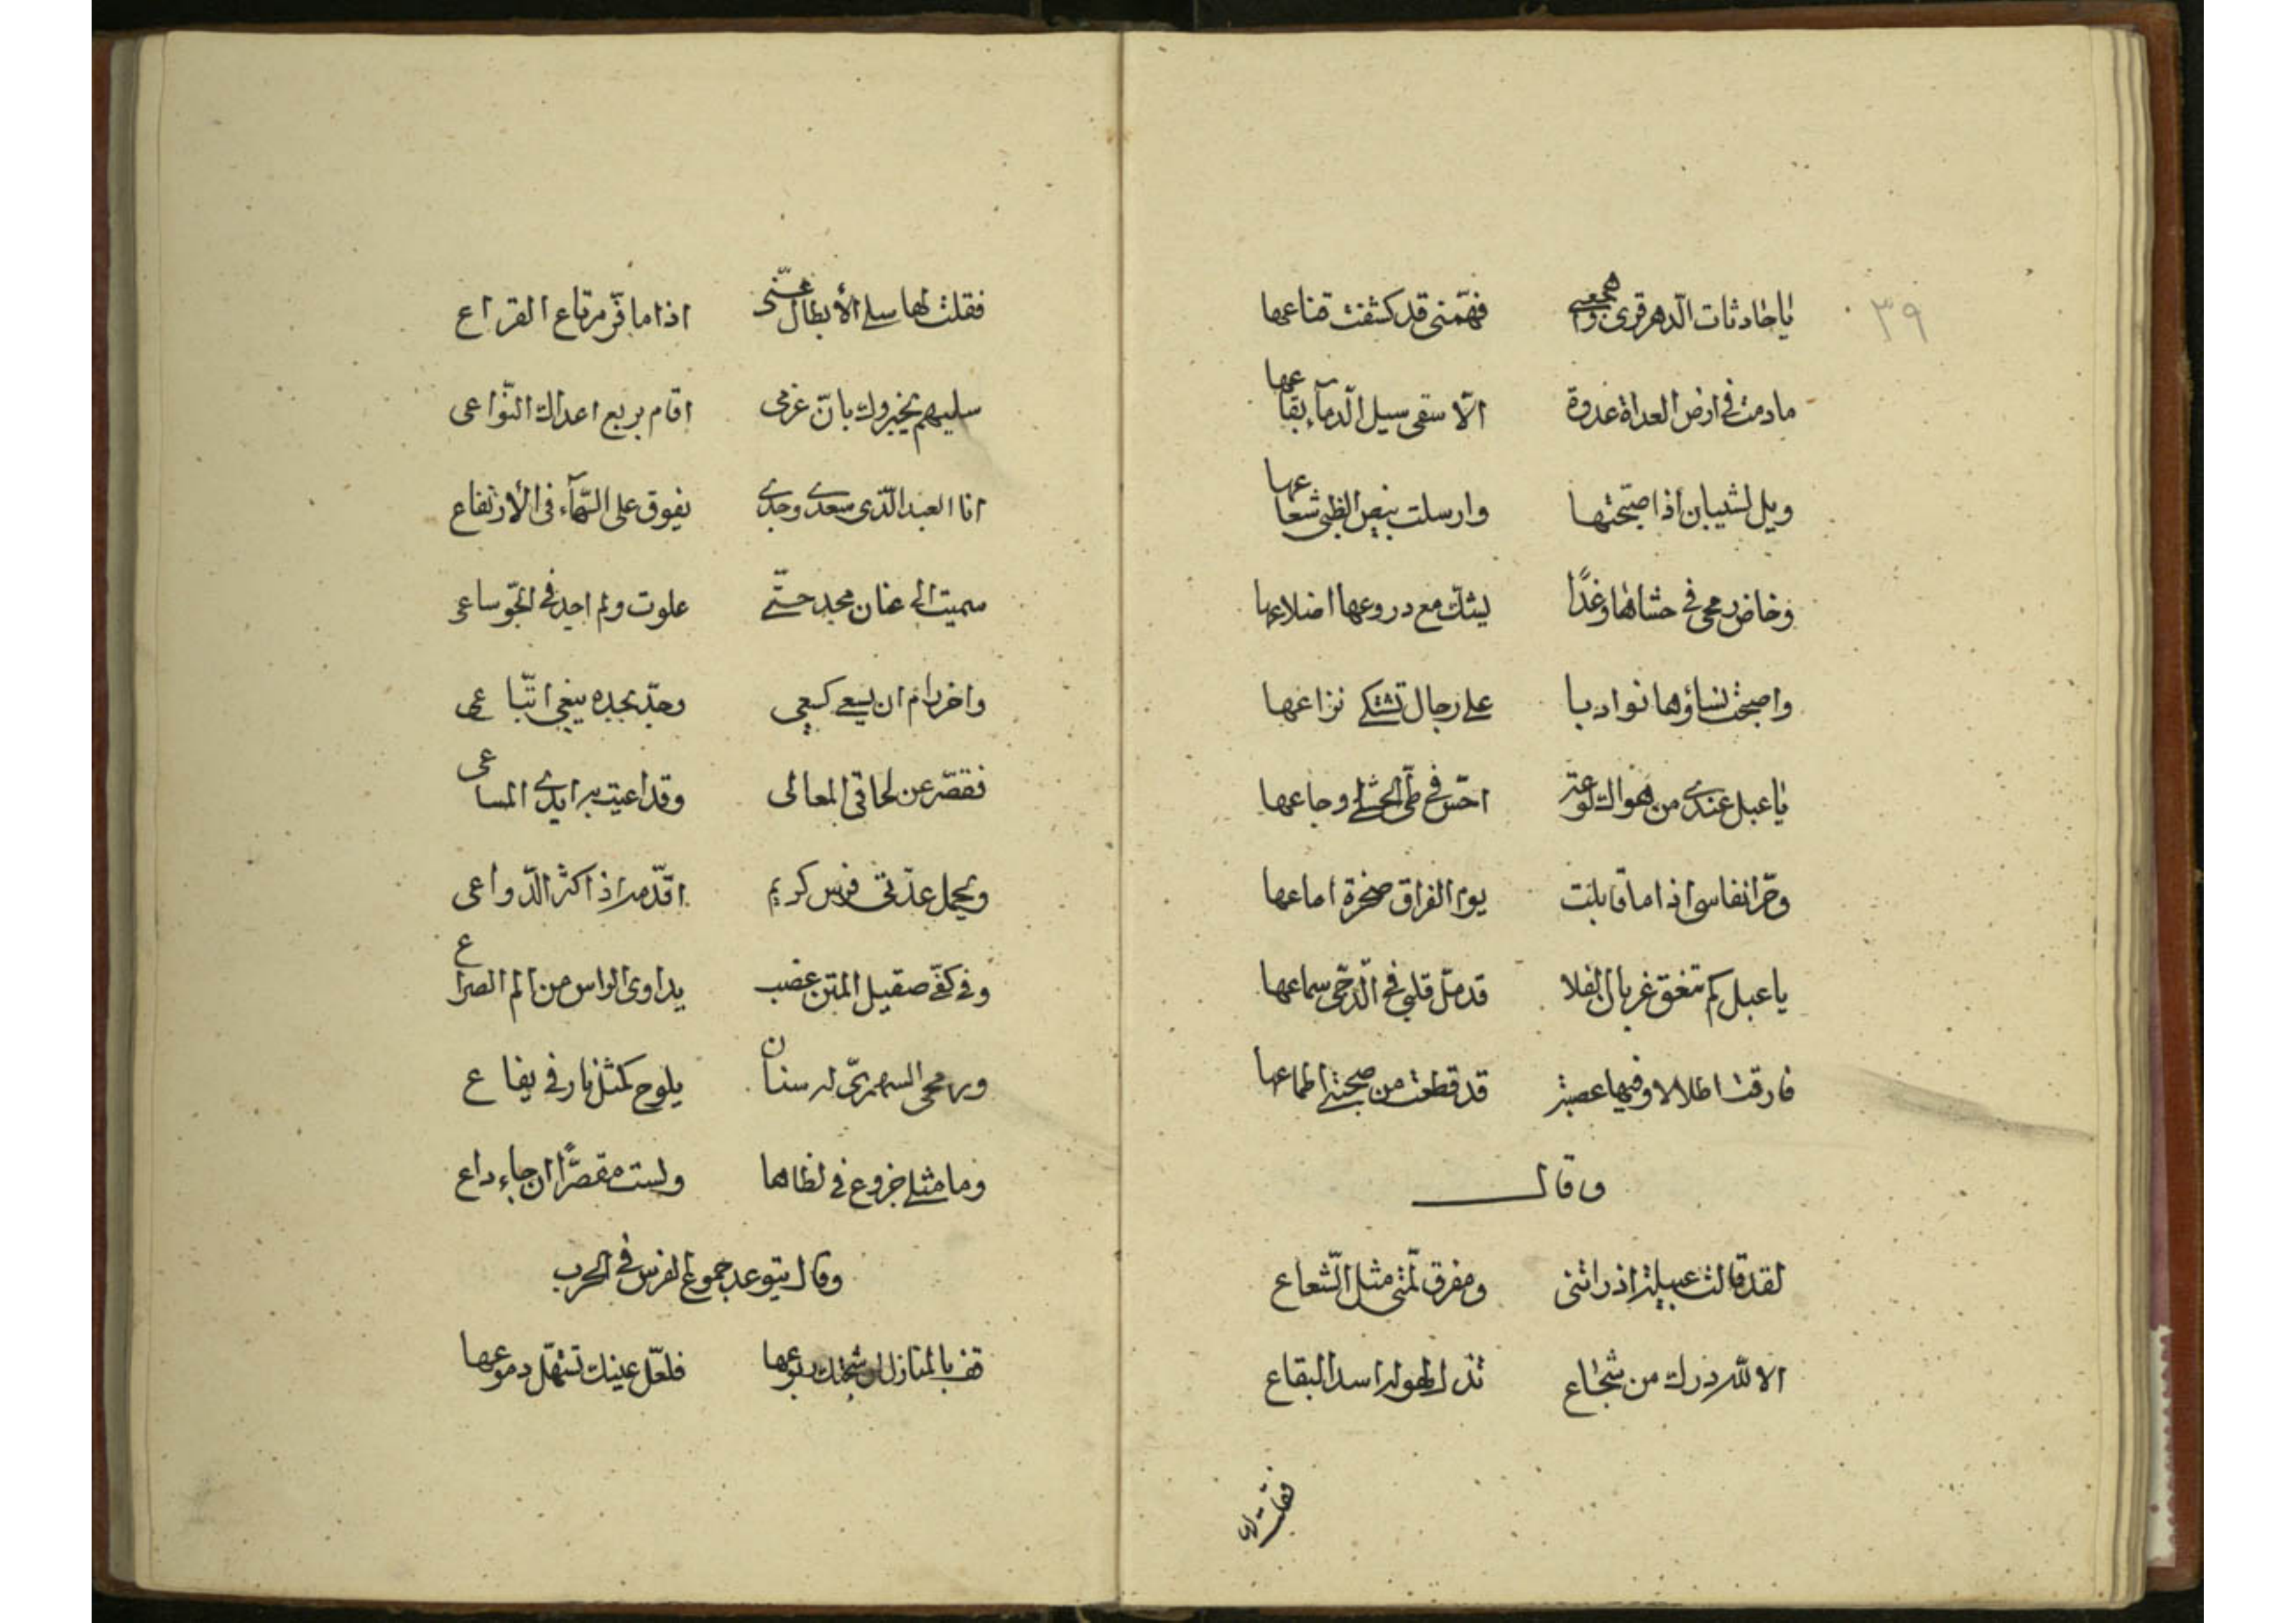 ٣٩
ياحادثات الدهر قرى واهجعى فهمّتى قد كشفت قناعها
مادمت فى ارض العداة غدوة الّا سقى سيل الدمآء بقاعها
ويل لشيبان اذا صبّحتها وارسلت بيض الظبى شعاعها
وخاض رمحى فى حشاها وغدًا يشكّ مع دروعها اضلاعها
واصبحت نساؤها نوادبا على رجال تشتكى نزاعها
ياعبل عندى من هواك لوعة احسّ فى طىّ الحشا وجاعها
وحرّ انفاسى اذا ماقابلت يوم الفراق صخرة اماعها
ياعبل كم تنغق غربان الفلا قد ملّ قلبى فى الدّجى سماعها
فارقت اطلالا وفيها عصبة قد قطعت من صحبتى اطماعها
وقال
لقد قالت عبيلة اذ راتنى ومفرق لمّتى مثل الشّعاع
الا لله درك من شجاع تذل لهوله اسد البقاع
فقلت لها
فقلت لها سلى الأبطال عنّى اذا ما فرّ مرتاع القراع
سليهم يخبروك بانّ عزمى اقام بربع اعداك النّواعى
انا العبد الّذى سعدى وجدى يفوق على السّمآء فى الأرتفاع
سميت الى عنان مجد حتّى علوت ولم اجد فى الجّو ساعى
واخر رام ان يسعى كسعى وجدّ بجده يبغى اتّباعى
فقصّر عن لحاقى المعالى وقد اعيت به ايدى المساعى
ويحمل عدّتى فرس كريم اقدّمه اذا كثر الدّواعى
وفى كفّى صقيل المتن عضب يداوى الراس من الم الصراع
ورمحى السمهرىّ له سنان يلوح كمثل نار فى يفاع
وما مثلى جزوع فى لظاها ولست مقصّرًا ان جاء داع
وقال يتوعد جموع الفرس فى الحرب
قف بالمنازل ان شجتك ربوعها فلعلّ عينك تستهلّ دموعها